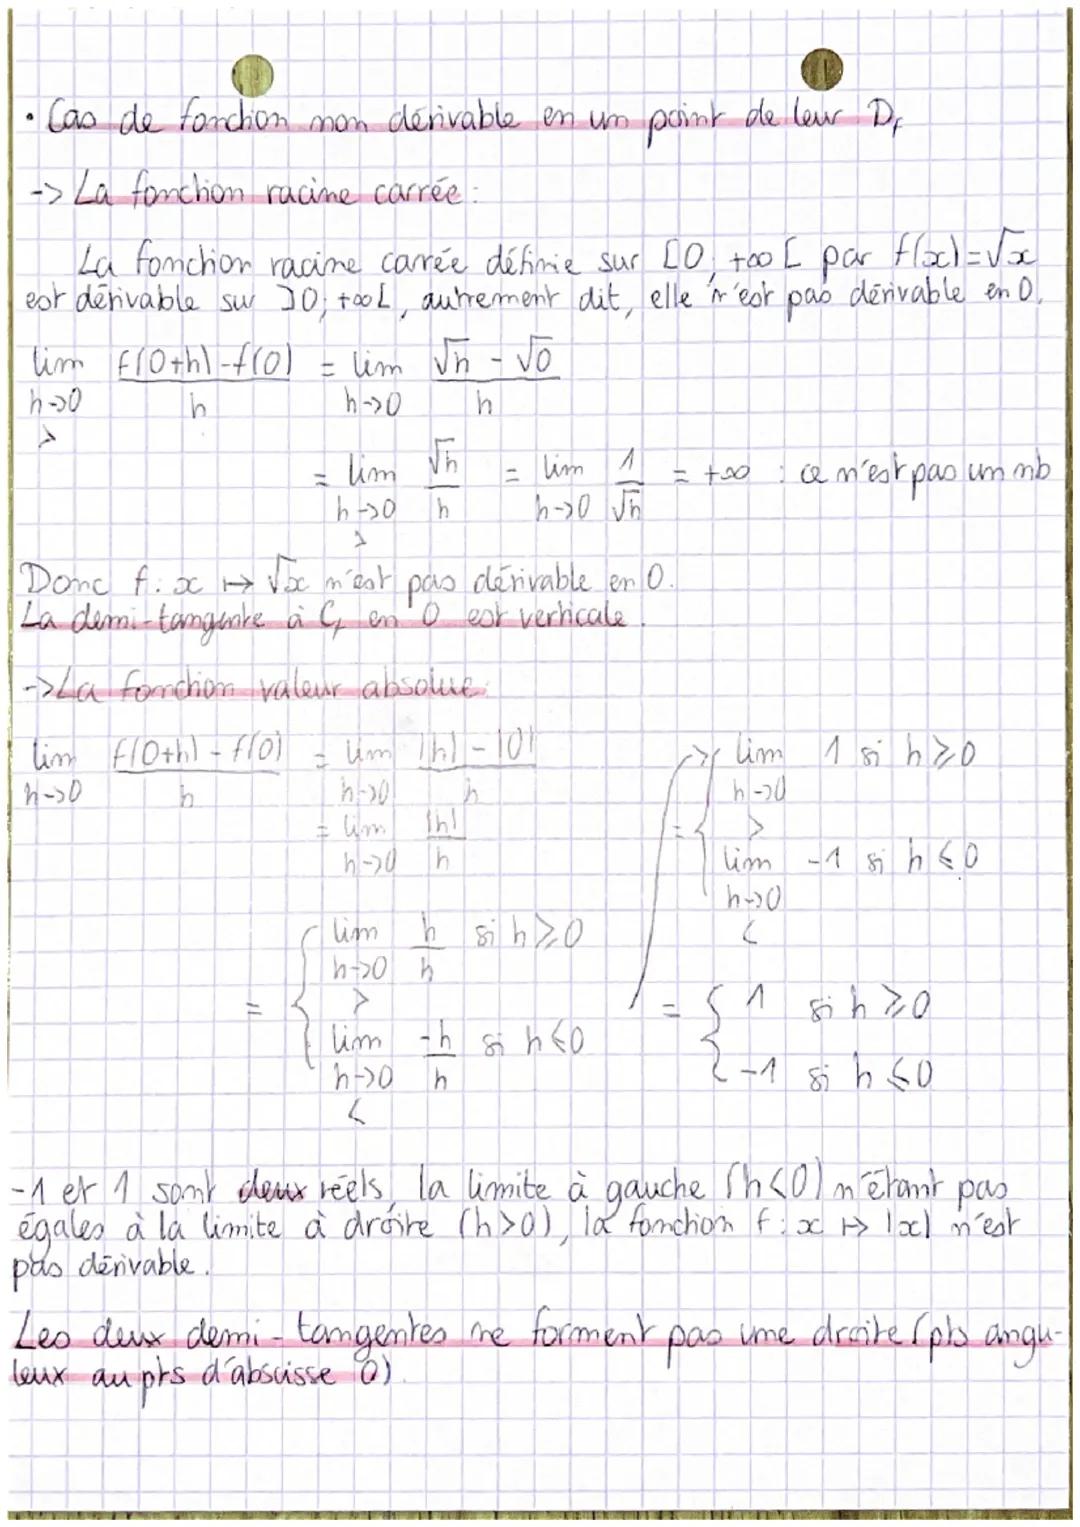 • Cas de fonction non dérivable en un point de leur Df
-> La fonction racine carrée :
La fonction racine carrée définie sur [0; +∞[ par f(x)=√x
est dérivable sur ]0; +∞[, autrement dit, elle n'est pas dérivable en 0.
lim f(0+h)-f(0) = lim √h - √0
h->0 h h->0 h
>
= lim √h = lim 1 = +∞ : ce n'est pas un nb
h->0 h h->0 √h
>
Donc f: x ↦ √x n'est pas dérivable en 0.
La demi-tangente à Cf en 0 est verticale.
-> La fonction valeur absolue:
lim f(0+h) - f(0) = lim |h| - |0|
h->0 h h->0 h
= lim |h|
h->0 h
= { lim h si h ⩾ 0
h->0 h
>
lim -h si h ⩽ 0
h->0 h
<
= { lim 1 si h ⩾ 0
h->0
>
lim -1 si h ⩽ 0
h->0
<
= { 1 si h ⩾ 0
-1 si h ⩽ 0
-1 et 1 sont deux réels, la limite à gauche (h<0) n'étant pas
égales à la limite à droite (h>0), la fonction f: x ↦ |x| n'est
pas dérivable.
Les deux demi-tangentes ne forment pas une droite (pts angu-
leux au pts d'abscisse 0).